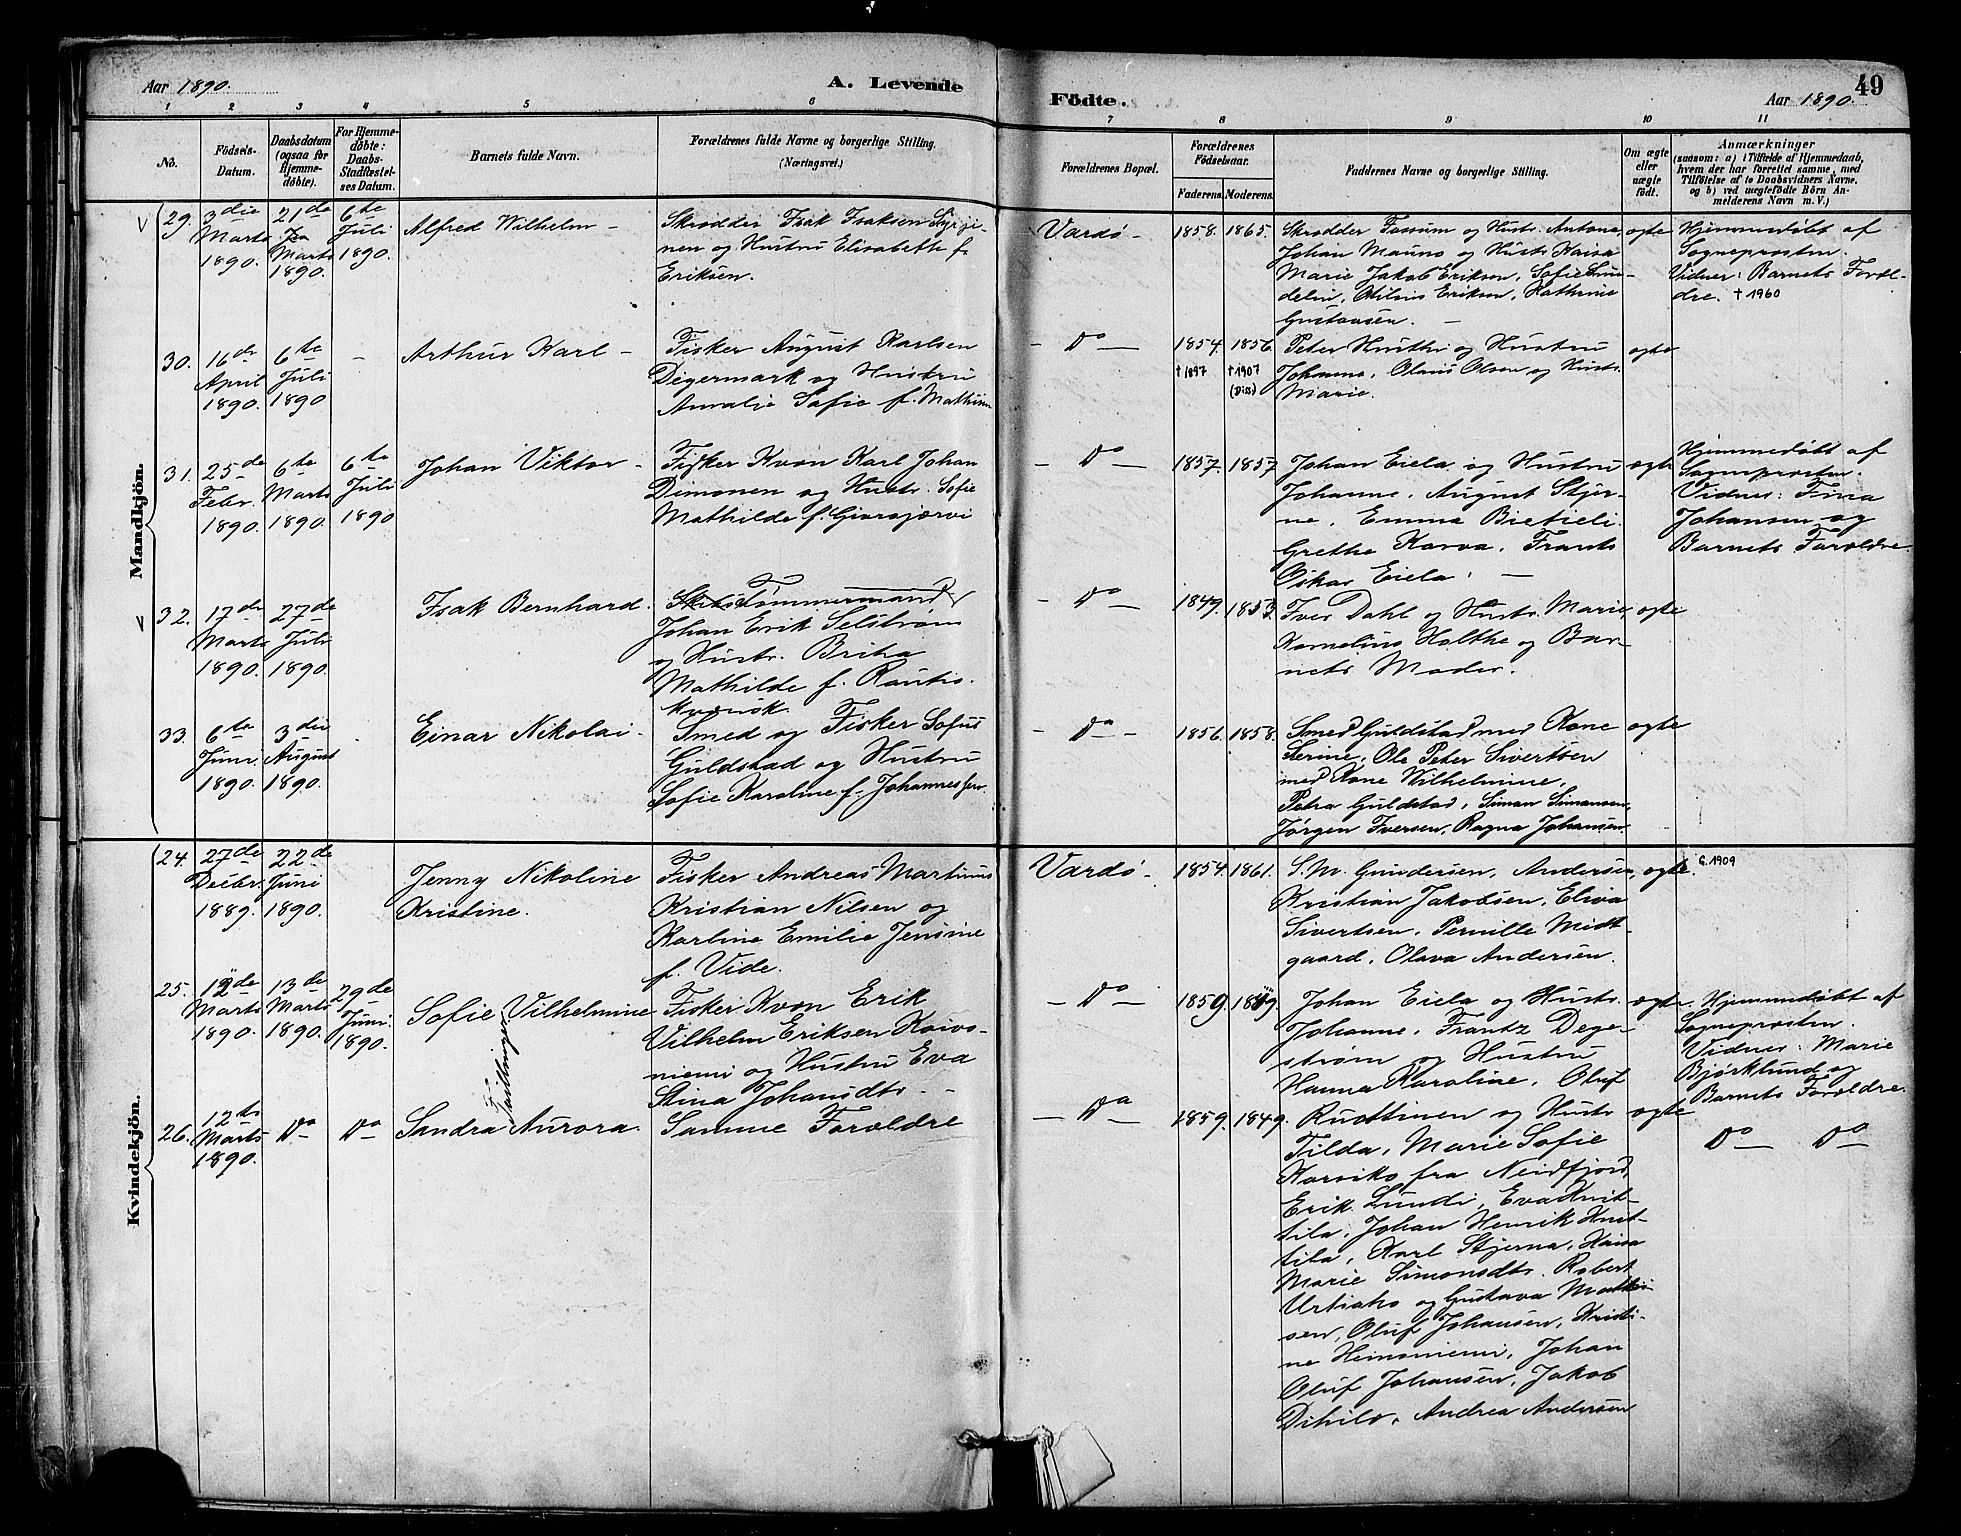 Aar 1890.
A. Levende
Födte.
Aar 1890.
49
1 2 3 4 5 6 7 8 9 10 11
No.
Födsels-
Datum.
Daabsdatum
(ogsaa for
Hjemme-
döbte).
For Hjemme-
döbte:
Daabs-
Stadfæstel-
ses Datum.
Barnets fulde Navn.
Forældrenes fulde Navne og borgerlige Stilling.
(Næringsvei.)
Forældrenes Bopæl.
Forældrenes
Födselsaar.
Faderens.
Moderens.
Faddernes Navne og borgerlige Stilling.
Om ægte
eller
uægte
födt.
Anmærkninger
(saasom: a) i Tilfælde af Hjemmedaab,
hvem der har forrettet samme, med
Tilföielse af to Daabsvidners Navne,
og b) ved uægtefödte Börn An-
melderens Navn m. V.)
Mandkjön.
V
29.
3die
Marts
1890.
21de
Marts
1890.
6te
Juli
1890.
Alfred Wilhelm -
Skrædder Isak Isaksen
nen og Hustru Elisabeth f.
Eriksen.
Vardø -
1858.
1865.
Skrædder Fossum og Hustr. Antona,
Johan Mauno og Hustr. Kaisa
Marie Jakob Eriksen, Sofie Lun-
delin, Eriksen, Kathrine
Gustavsen. -
ægte
Hjemmedøbt af
Sogneprosten.
Vidner: Barnets Foræl-
dre. † 1960
30.
16de
April
1890.
6te
Juli
1890
-
Arthur Karl -
Fisker August Karlsen
Degermark og Hustru
Amalie Sofie f. Mathisen
- Do -
1854.
† 1897
1856.
† 1907
(Diss)
Peter og Hustru
Johanne, Olaus Olsen og Hustr.
Marie.
ægte
31.
25de
Febr.
1890.
6te
Marts
1890.
6te
Juli
1890
Johan Viktor -
Fisker Kvæn Karl Johan
Dimonen og Hustr. Sofie
Mathilde f.
- Do -
1857.
1857
Johan Eiela og Hustru
Johanne, August Stjer-
ne, Emma
Grethe Korva, Frants
Oskar Eiela. -
ægte
Hjemmedøbt af
Sogneprosten.
Vidner: Fina
Johansen og
Barnets Forældre.
V
32.
17de
Marts
1890.
27de
Juli
1890.
Isak Bernhard.
Tømmermand
Johan Erik Selstrøm
og Hustr. Brita
Mathilde f. Rautio.
Kvænsk.
- Do -
1849.
1853.
Iver Dahl og Hustr. Marie,
Kornelius Holthe og Bar-
nets Moder.
ægte
33.
6te
Juni
1890.
3die
August
1890.
Einar Nikolai -
Smed og Fisker Sofus
Guldstad og Hustru
Sofie Karoline f. Johannessen.
- Do -
1856.
1858.
Smed Guldstad med Kone
Serine, Ole Peter Sivertsen
med Kone Wilhelmine,
Petra Guldstad, Simon Simonsen,
Jørgen Iversen, Ragna Johansen
ægte
Kvindekjön.
24.
27de
Decbr.
1889.
22de
Juni
1890.
Jenny Nikoline
Kristine.
Fisker Andreas Martinus
Kristian Nilsen og
Karline Emilie Jensine
f. Vide.
Vardø -
1854.
1861.
S. M. Gundersen, Andersen,
Kristian Jakobsen, Elisa
Sivertsen, Pernille Midt-
gaard, Olava Andersen.
ægte.
G. 1909
25.
12de
Marts
1890.
13de
Marts
1890.
29de
Juni
1890.
Sofie Vilhelmine
Tvillinger
Fisker Kvæn Erik
Vilhelm Eriksen Koivo-
niemi og Hustru Eva
Stina Johansdtr. -
- Do -
1859.
1849.
Johan Eiela og Hustr.
Johanne, Frantz Dege-
strøm og Hustru
Hanna Karoline, Oluf
ægte.
Hjemmedøbt af
Sogneprosten.
Vidner: Marie
Bjørklund og
Barnets Forældre.
26.
12te
Marts
1890.
Do
Do
Sandra Aurora.
Samme Forældre
- Do -
1859.
1849.
Ruottinen og Hustr
Tilda, Marie Sofie
Karviko fra Neidfjord,
Erik Lundi, Eva Knit-
tila, Johan Henrik Knit-
tila, Karl Stjerna, Kaisa
Marie Simonsdtr. Robert
Urtiaho og Gustava Mathi-
sen, Oluf Johansen, Kristi-
ne Heimoniemi, Johan
Oluf Johansen, Jakob
Andrea Andersen
ægte
Do - Do -